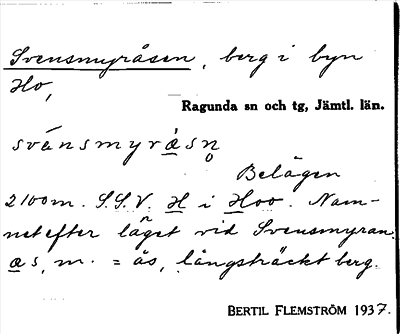 Svensmyråsen, berg i byn
Ho,
Ragunda sn och tg, Jämtl. län.
svánsmyràsn̥
Belägen
2100 m. S.S.V. H i Hoo. Nam-
net efter läget vid Svensmyran.
ås, m. = ås, långsträckt berg.
BERTIL FLEMSTRÖM 1937.